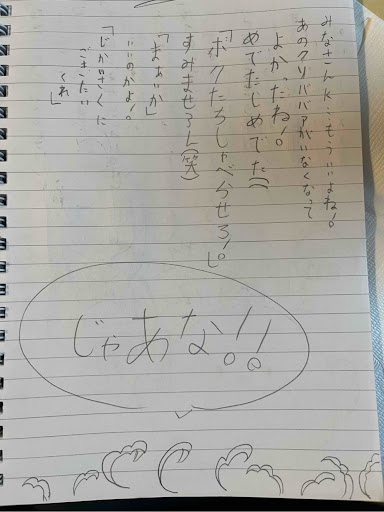 みなさんに…もういいよね!。
あのクソババアがいなくなって
よかったね!。
めでたしめでた((
「ボクたちしゃべらせろ!。」
すみませろん(笑)
「まぁいか」
いいのかよ!。
「じかいさくに
ごきたい
くれ」
じゃあな!!。